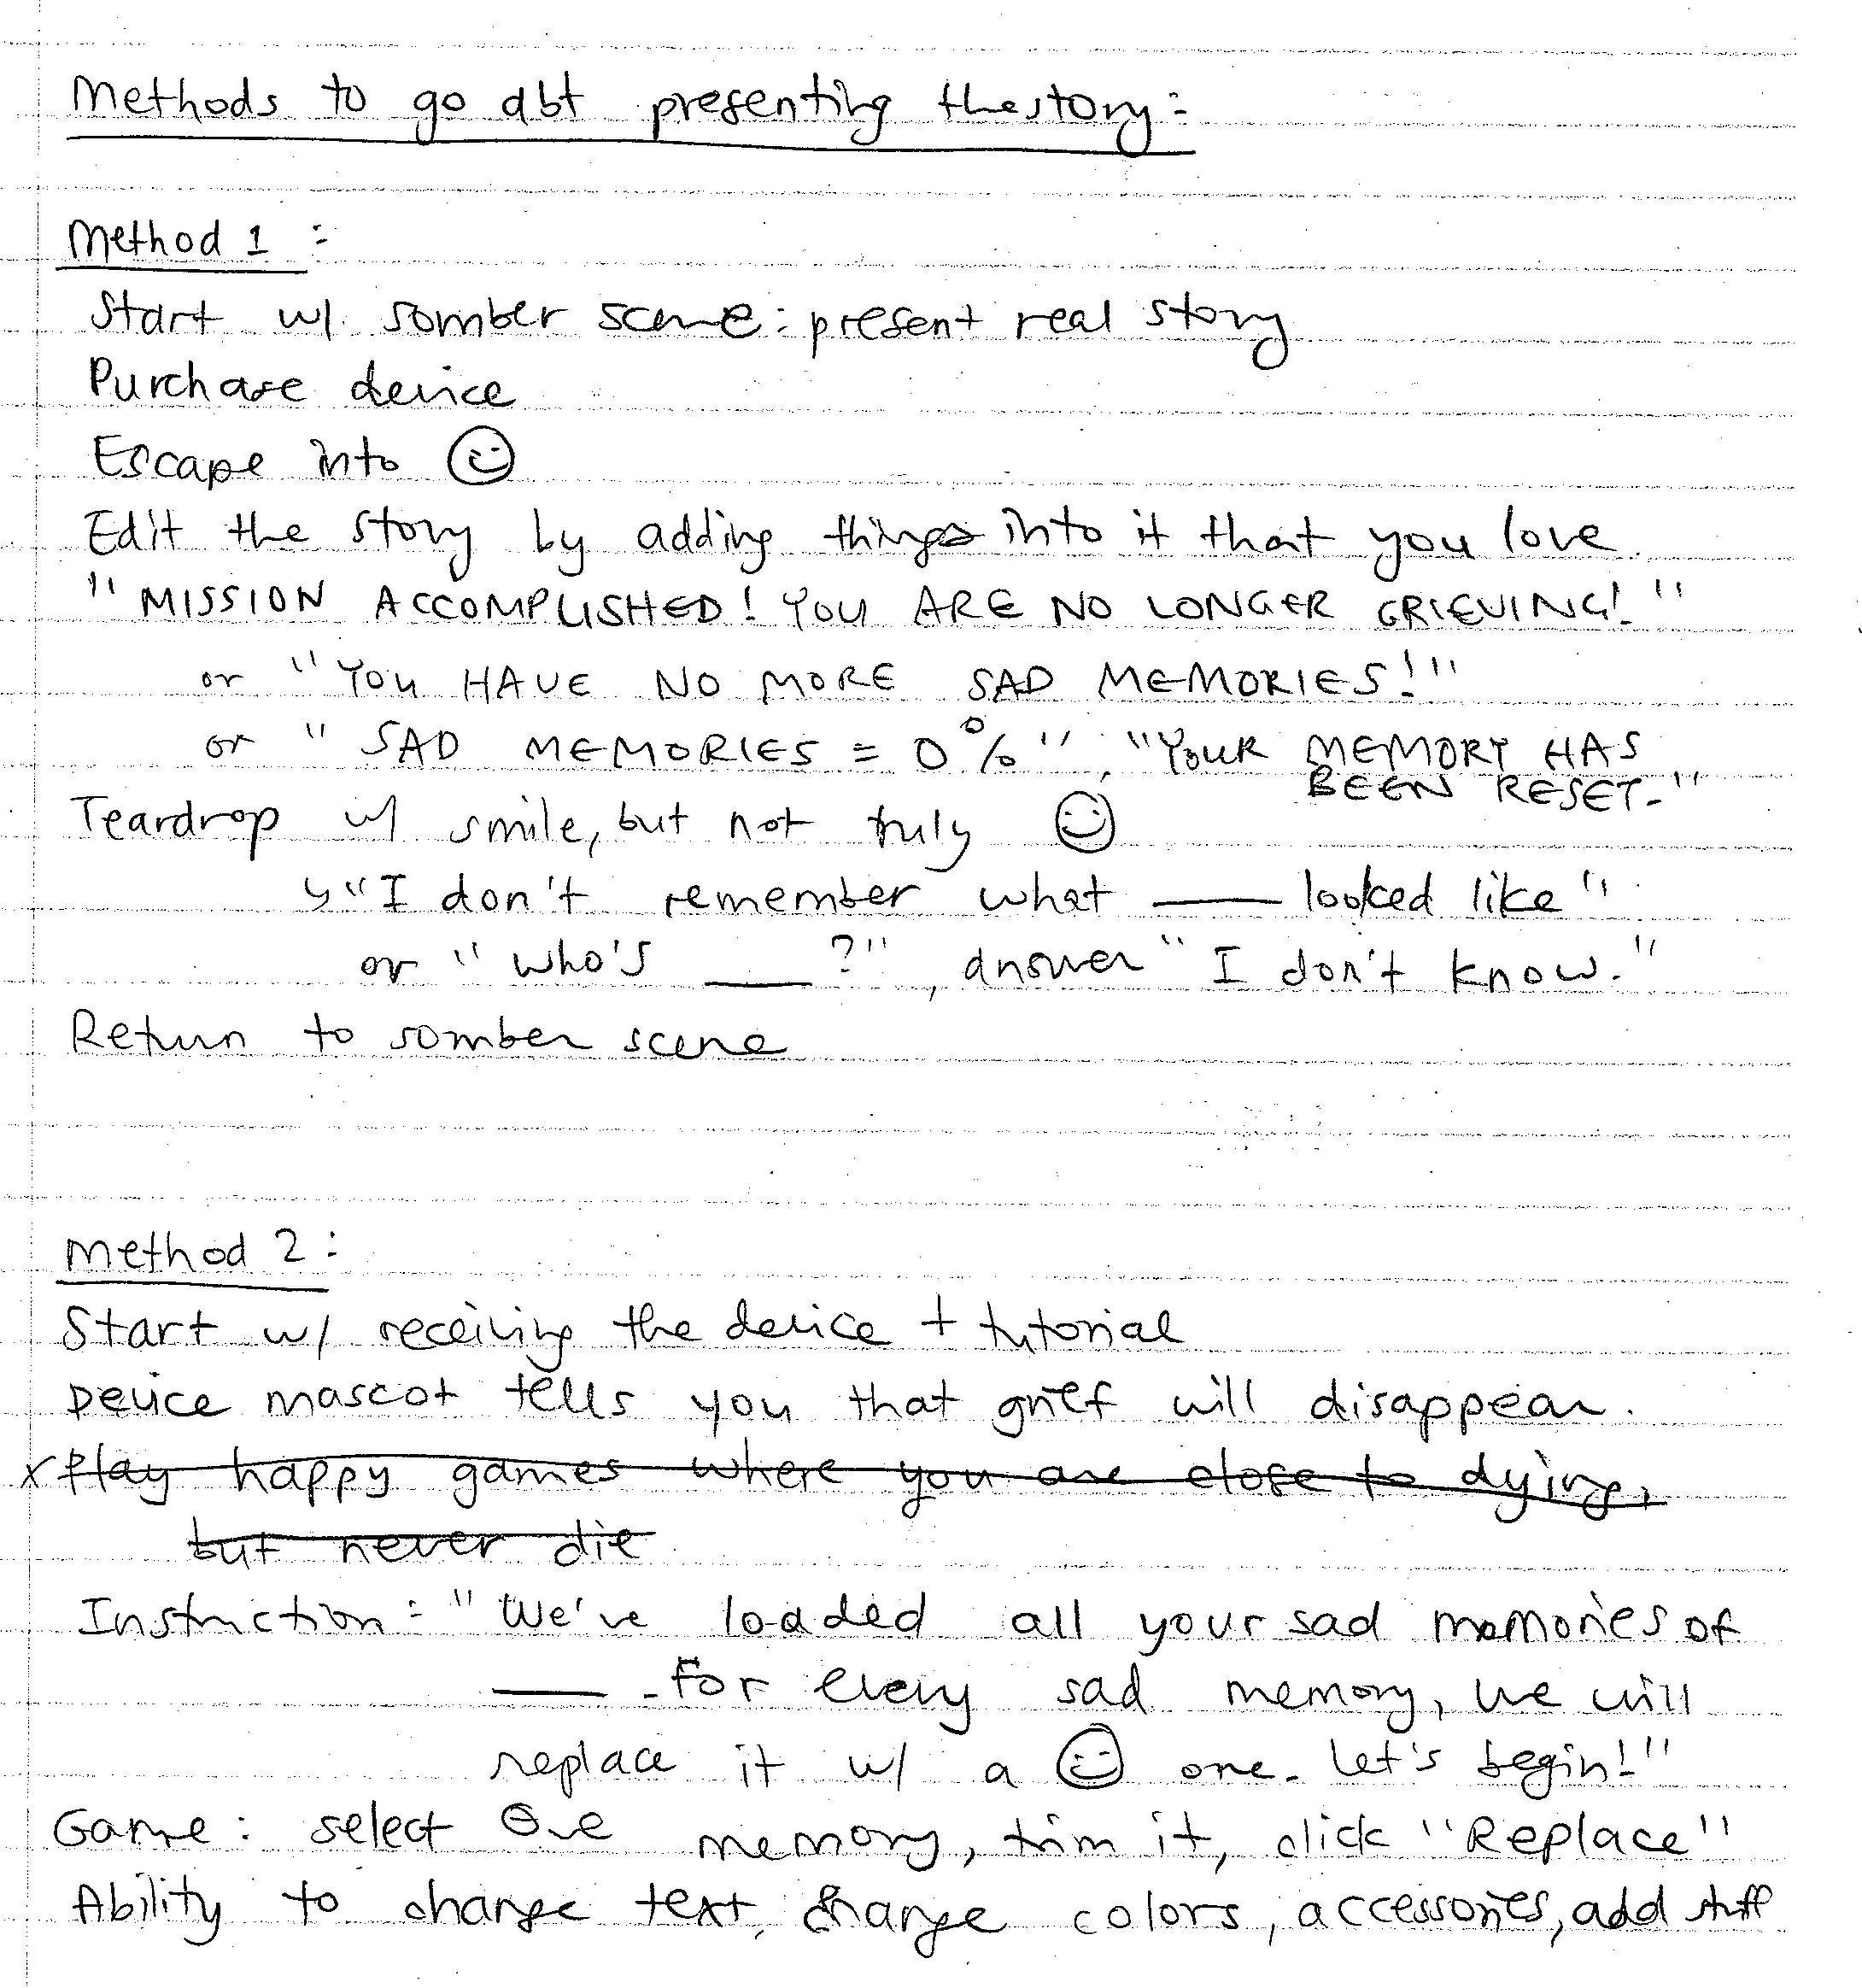 Methods to go abt presenting the story:
Method 1:
Start w/ somber scene: present real story
Purchase device
Escape into ☺
Edit the story by adding things into it that you love.
"MISSION ACCOMPLISHED! YOU ARE NO LONGER GRIEVING!"
or "YOU HAVE NO MORE SAD MEMORIES!"
or "SAD MEMORIES = 0%", "YOUR MEMORY HAS
BEEN RESET."
Teardrop w/ smile, but not truly ☺
↳ "I don't remember what ___ looked like"
or "who's ___?", answer "I don't know."
Return to somber scene
Method 2:
Start w/ receiving the device + tutorial
Device mascot tells you that grief will disappear.
x Play happy games where you are close to dying,
but never die
Instruction: "We've loaded all your sad memories of
___. For every sad memory, we will
replace it w/ a ☺ one. Let's begin!"
Game: select one memory, trim it, click "Replace"
Ability to change text, change colors, accessories, add stuff